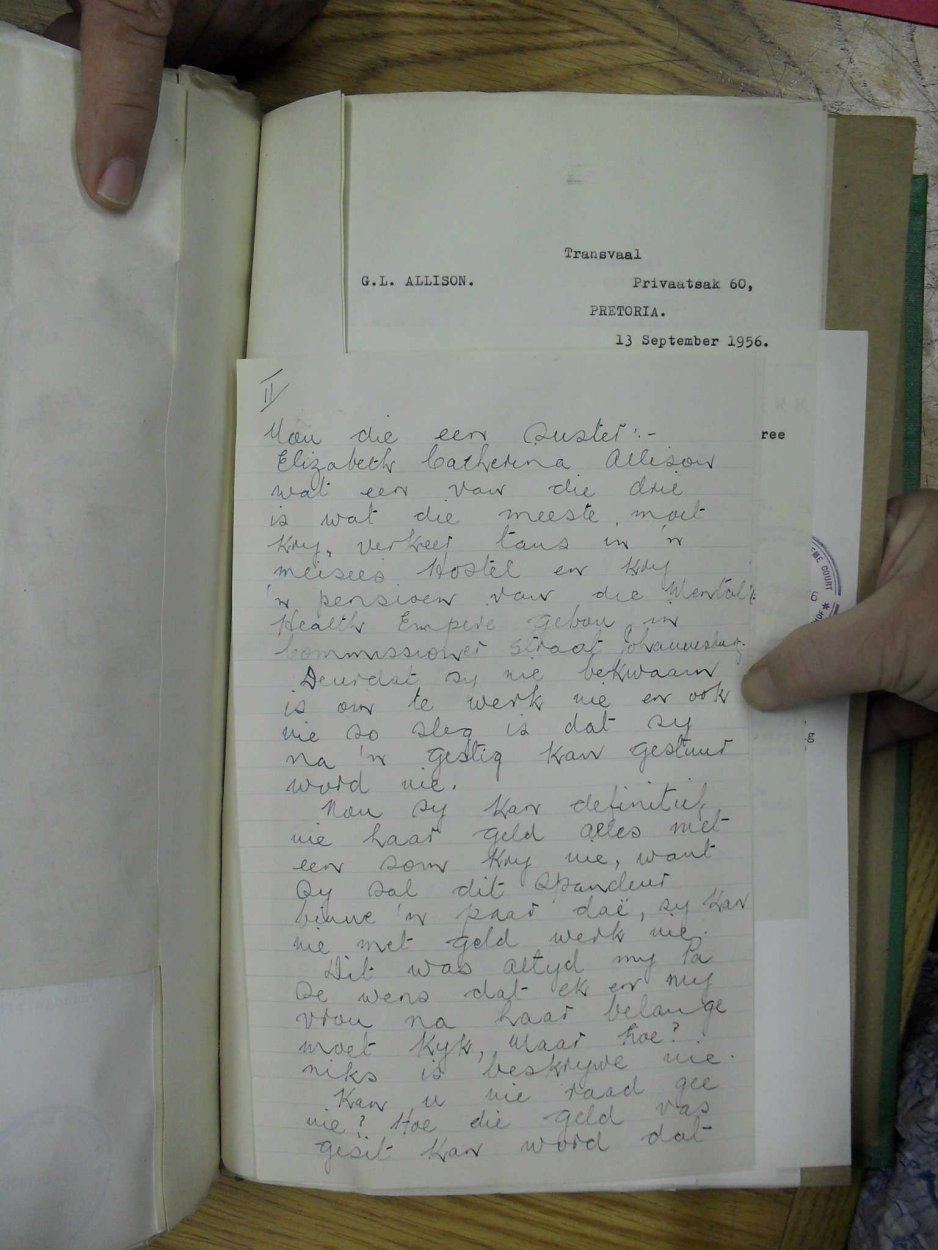 Transvaal
G.L. ALLISON. Privaatsak 60,
PRETORIA.
13 September 1956.
ree
II
Nou die een suster:-
Elizabeth Catherina Allison
wat een van die drie
is wat die meeste moet
kry, verkeer tans in 'n
meisees Hostel en kry
'n pensioen van die Mental
Health Empire gebou in
Commissioner Straat Johannesburg.
Deurdat sy nie bekwaam
is om te werk nie en ook
nie so sleg is dat sy
na 'n gestig kan gestuur
word nie.
Nou sy kan definitief
nie haar geld alles met
een som kry nie, want
sy sal dit spandeur
binne 'n paar daë, sy kan
nie met geld werk nie.
Dit was altyd my Pa
se wens dat ek en my
vrou na haar belange
moet kyk, maar hoe?
niks is beskrywe nie.
Kan u nie raad gee
nie? Hoe die geld vas
gesit kan word dat
COURT